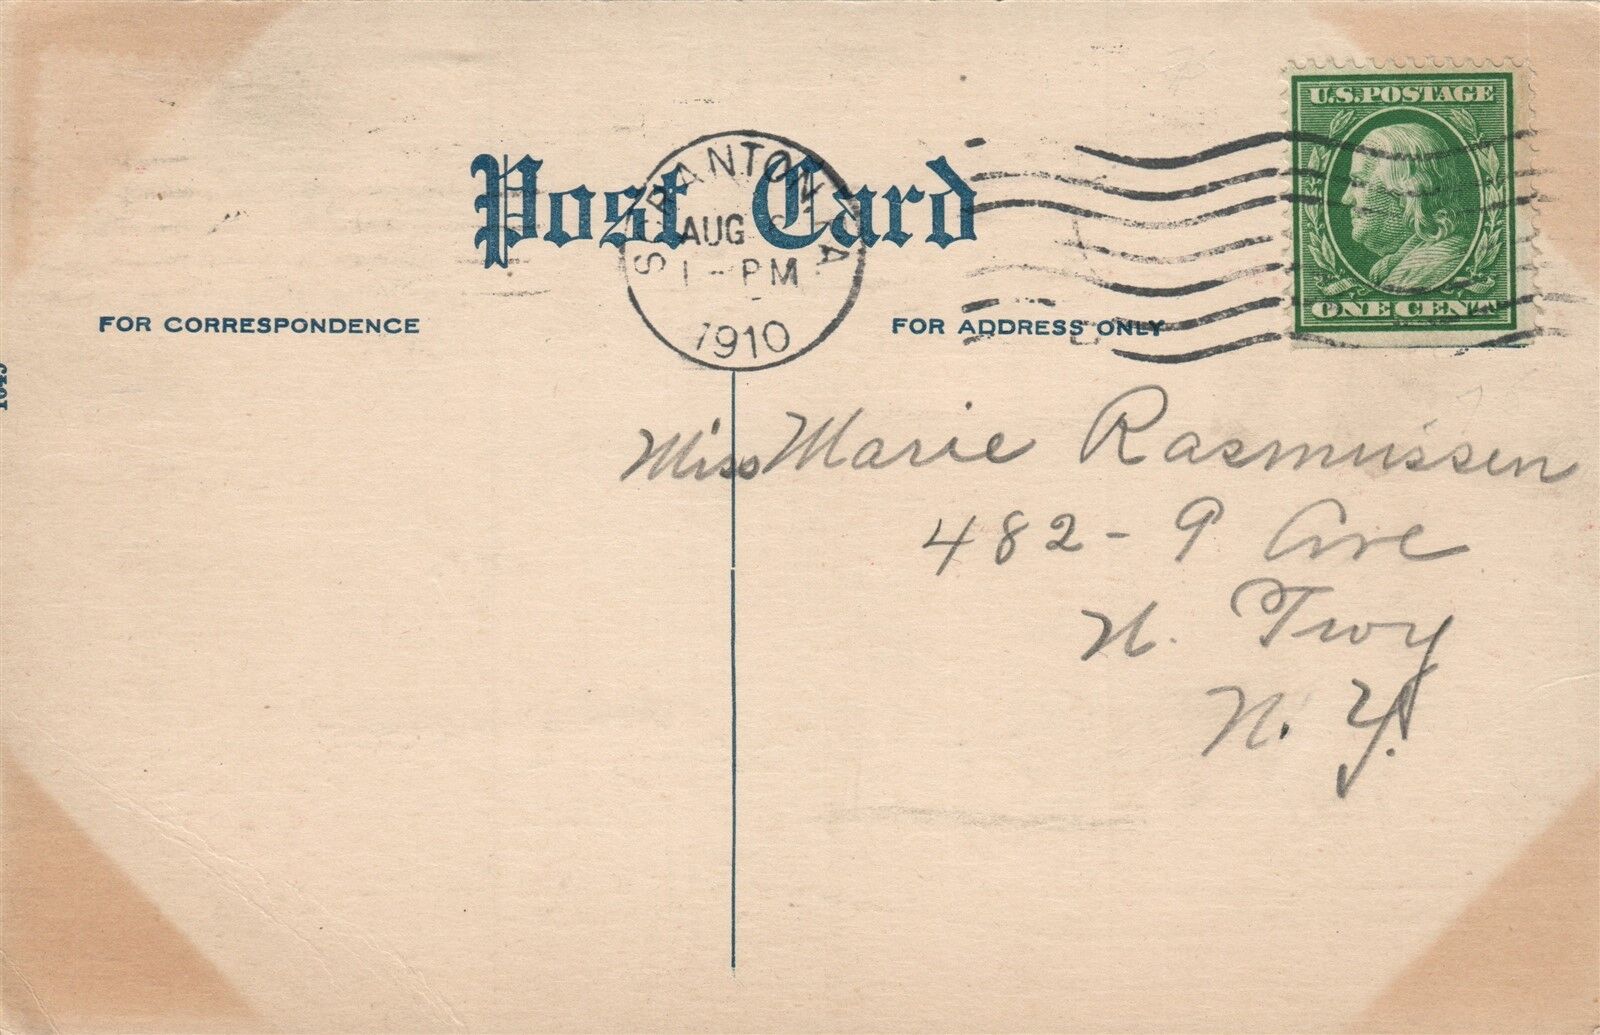 U.S.POSTAGE
Post Card
SCRANTON PA
AUG
1 - PM
1910
ONE CENT
FOR CORRESPONDENCE
FOR ADDRESS ONLY
Miss Marie Rasmussen
482 - 9 Ave
N. Troy
N. Y.